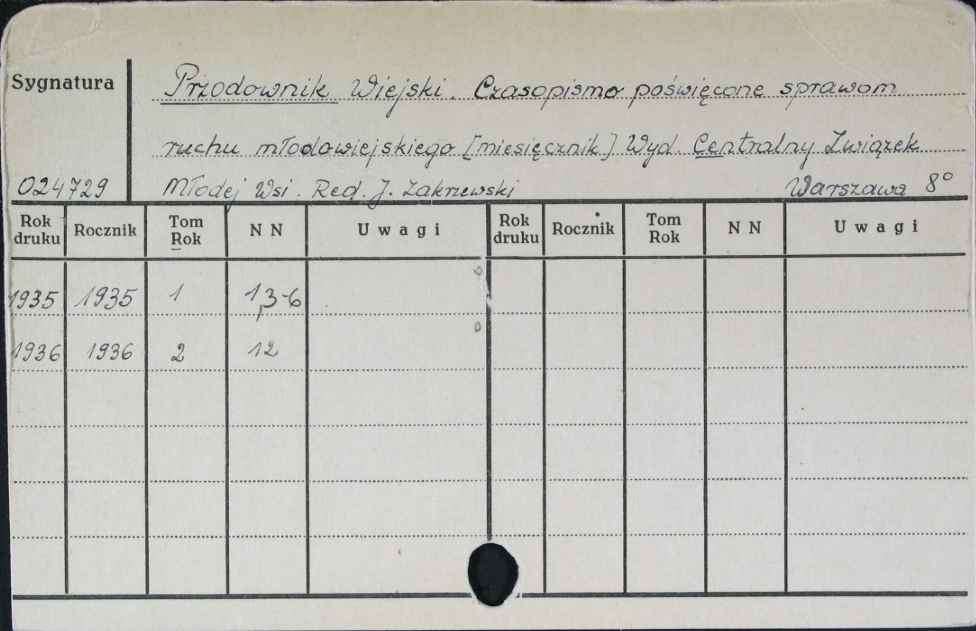 Sygnatura
Przodownik Wiejski. Czasopismo poświęcone sprawom
ruchu młodowiejskiego [miesięcznik] Wyd. Centralny Związek
024729 Młodej Wsi. Red. J. Zakrzewski Warszawa 8°
Rok druku Rocznik Tom Rok NN Uwagi Rok druku Rocznik Tom Rok NN Uwagi
1935 1935 1 1,3-6
1936 1936 2 12